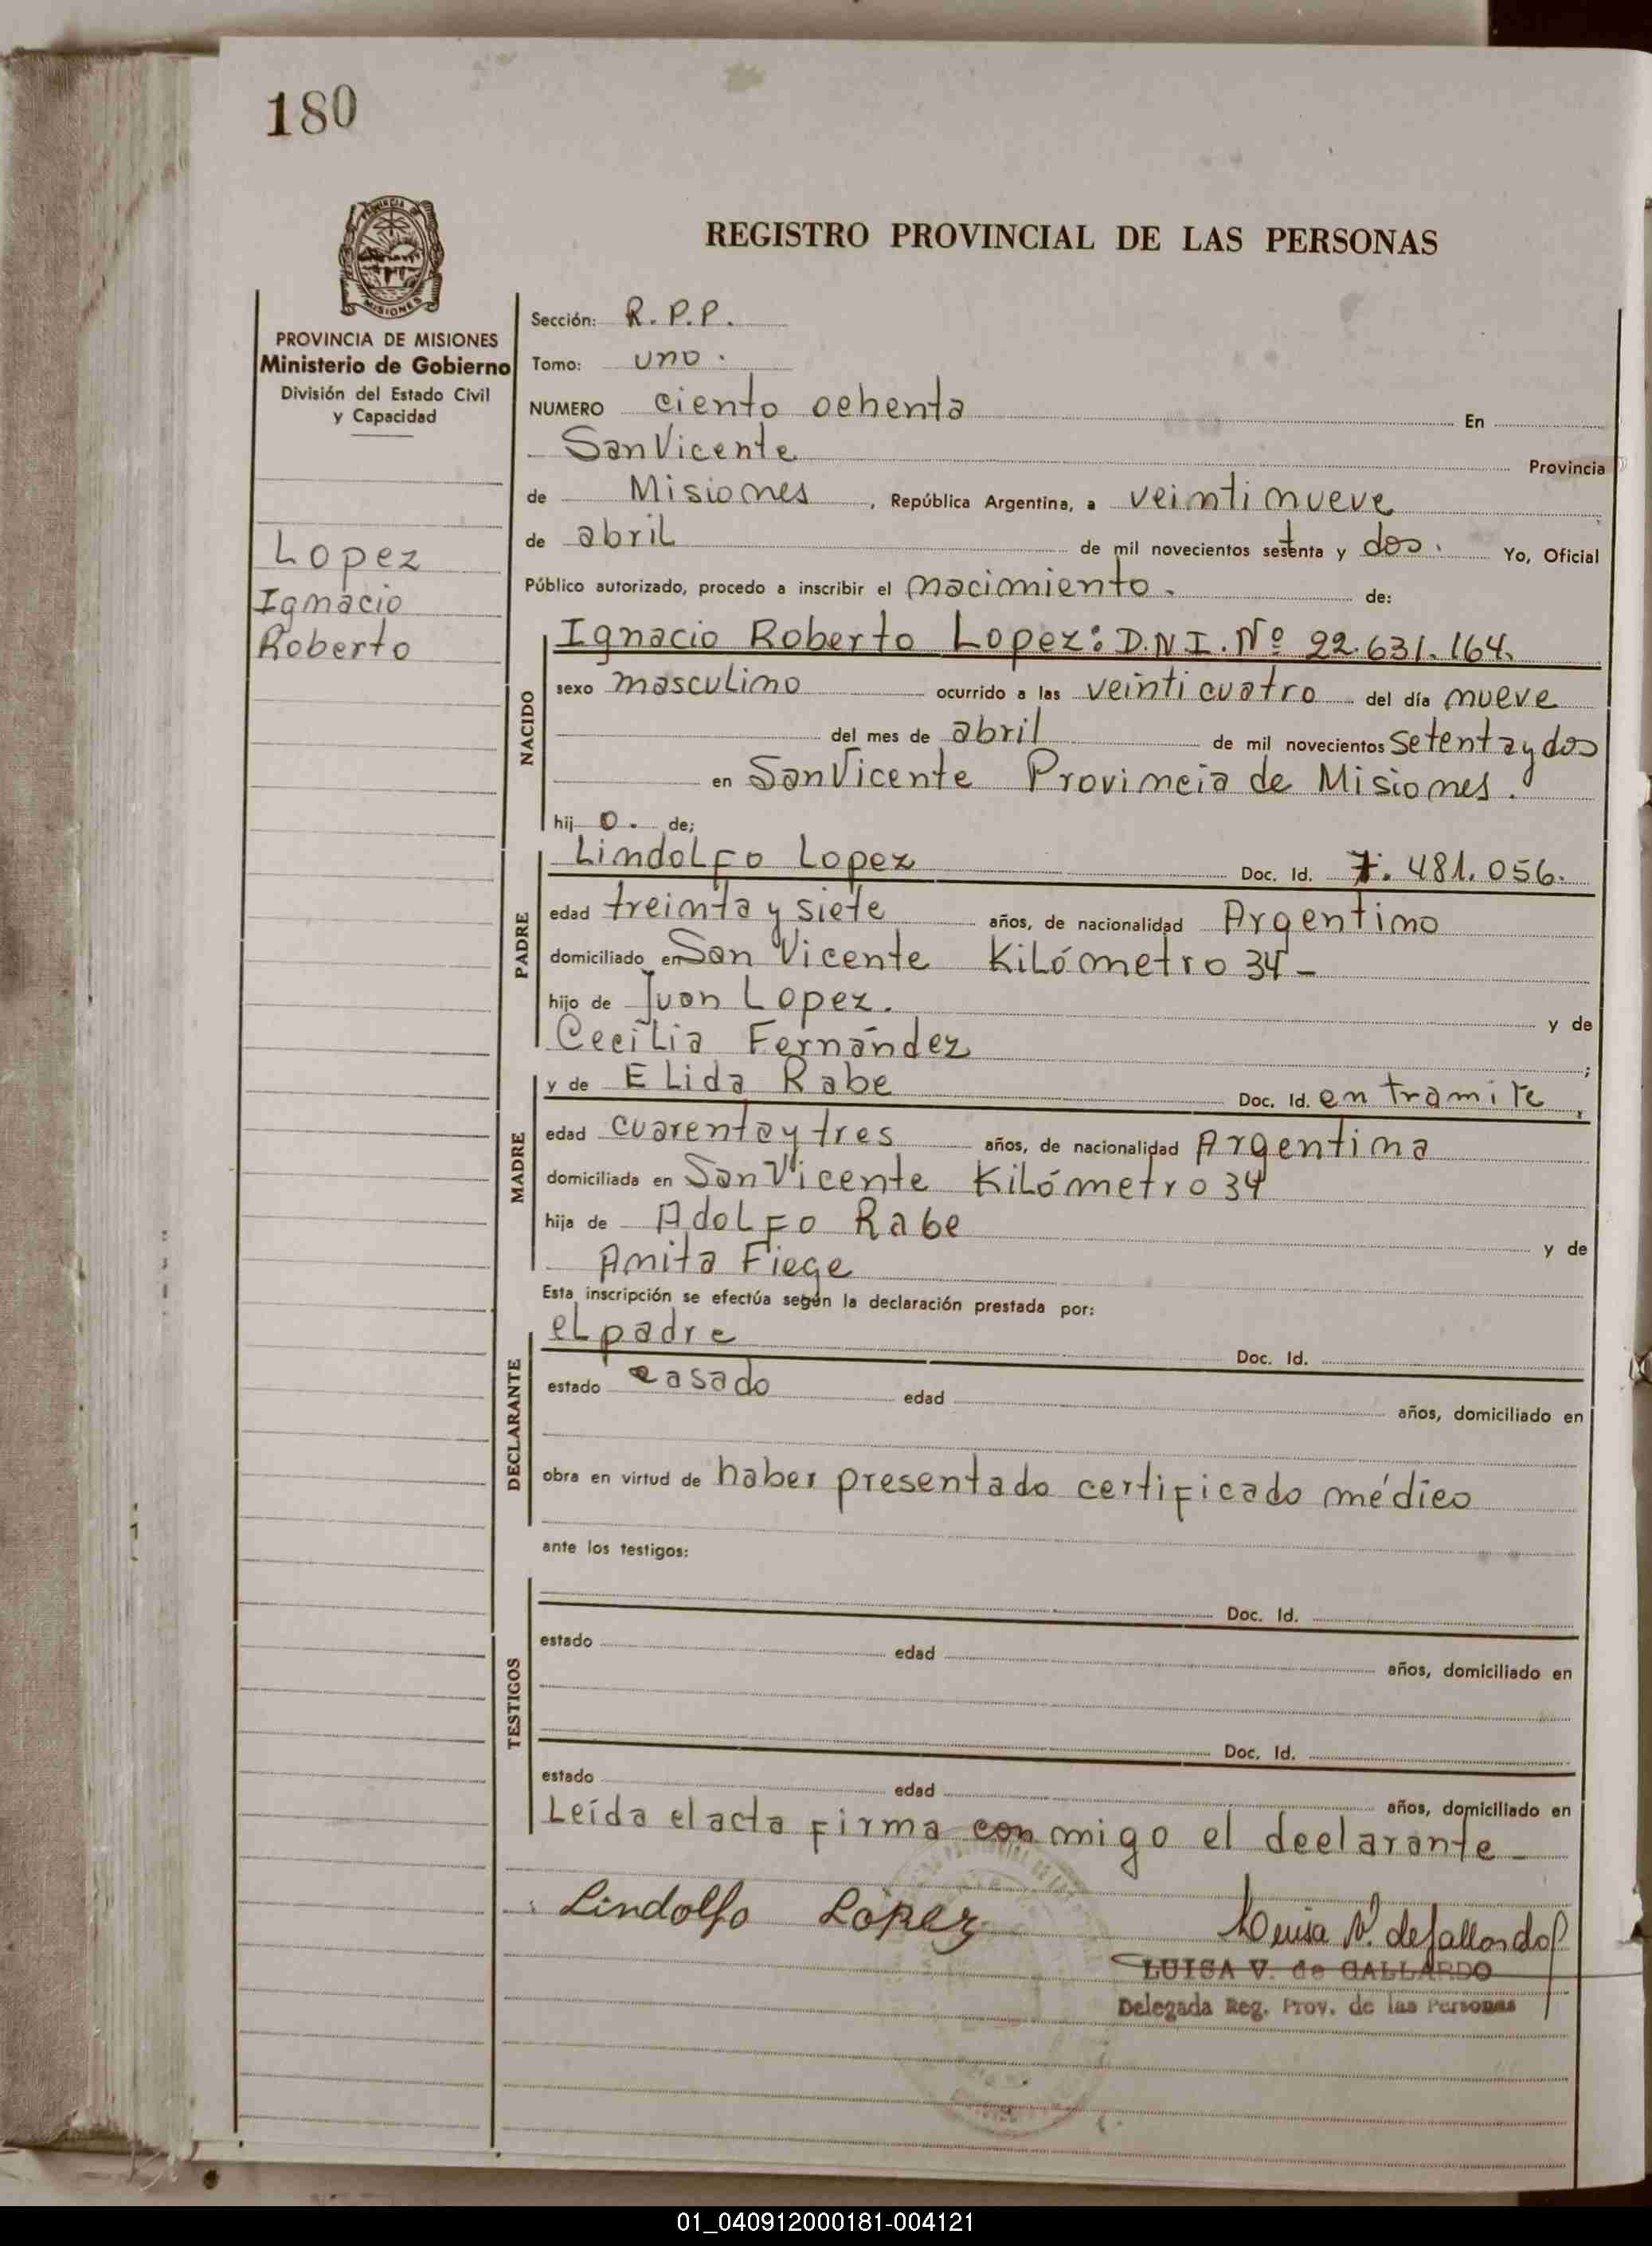 180
REGISTRO PROVINCIAL DE LAS PERSONAS
MISIONES
PROVINCIA DE MISIONES
Ministerio de Gobierno
División del Estado Civil
y Capacidad
Lopez
Ignacio
Roberto
Sección: R.P.P.
Tomo: uno.
NUMERO ciento ochenta En
San Vicente Provincia
de Misiones, República Argentina, a veintinueve
de abril de mil novecientos setenta y dos. Yo, Oficial
Público autorizado, procedo a inscribir el nacimiento. de:
NACIDO
Ignacio Roberto Lopez: D.N.I. Nº 22.631.164.
sexo masculino ocurrido a las veinticuatro del día nueve
del mes de abril de mil novecientos setenta y dos
en San Vicente Provincia de Misiones.
hij o. de;
PADRE
Lindolfo Lopez Doc. Id. 7.481.056.
edad treinta y siete años, de nacionalidad Argentino
domiciliado en San Vicente Kilómetro 34-
hijo de Juan Lopez. y de
Cecilia Fernández;
MADRE
y de Elida Rabe Doc. Id. en tramite,
edad cuarenta y tres años, de nacionalidad Argentina
domiciliada en San Vicente Kilómetro 34
hija de Adolfo Rabe y de
Anita Fiege
Esta inscripción se efectúa según la declaración prestada por:
DECLARANTE
el padre Doc. Id.
estado casado edad años, domiciliado en
obra en virtud de haber presentado certificado médico
ante los testigos:
TESTIGOS
Doc. Id.
estado edad años, domiciliado en
Doc. Id.
estado edad años, domiciliado en
Leída el acta firma conmigo el declarante-
Lindolfo López
Luisa V. de Gallardo
LUISA V. de GALLARDO
Delegada Reg. Prov. de las Personas
01_040912000181-004121